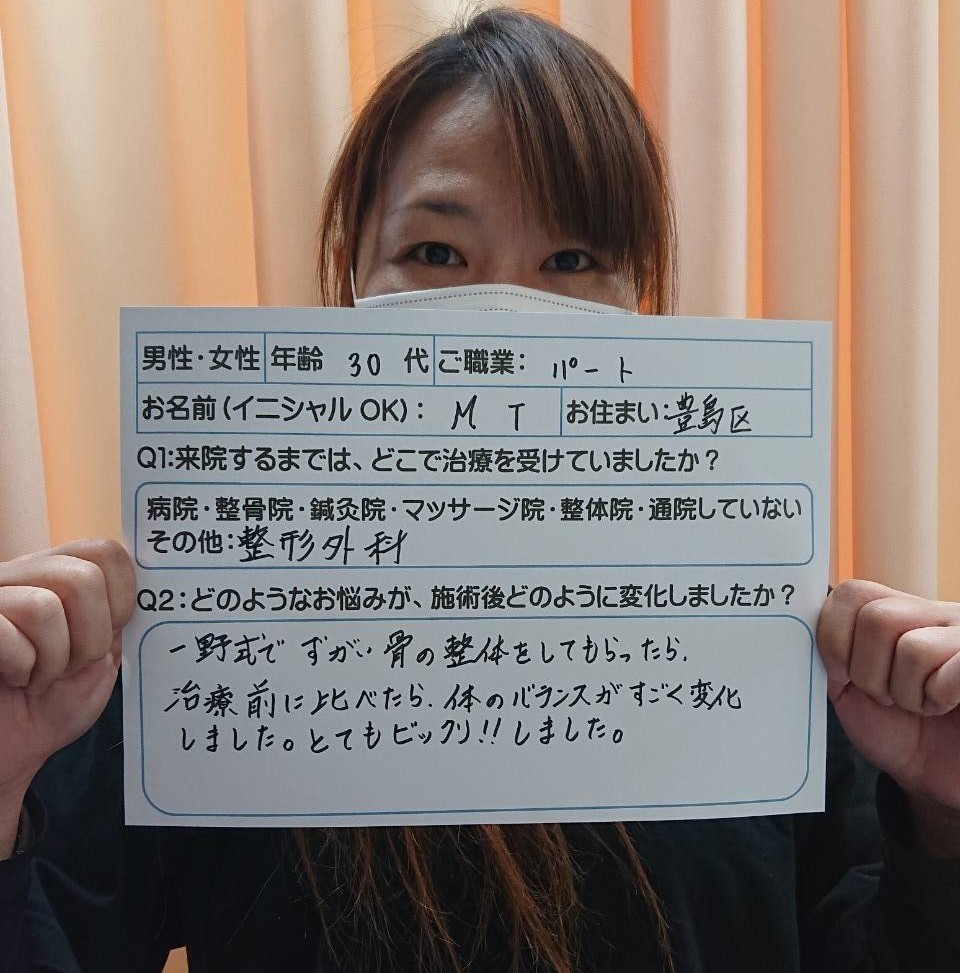 男性・女性 年齢 30 代 ご職業： パート
お名前（イニシャル OK）： M T お住まい：豊島区
Q1:来院するまでは、どこで治療を受けていましたか？
病院・整骨院・鍼灸院・マッサージ院・整体院・通院していない
その他：整形外科
Q2：どのようなお悩みが、施術後どのように変化しましたか？
一野式で ずがい骨の整体をしてもらったら、
治療前に比べたら、体のバランスがすごく変化
しました。とてもビックリ!!しました。